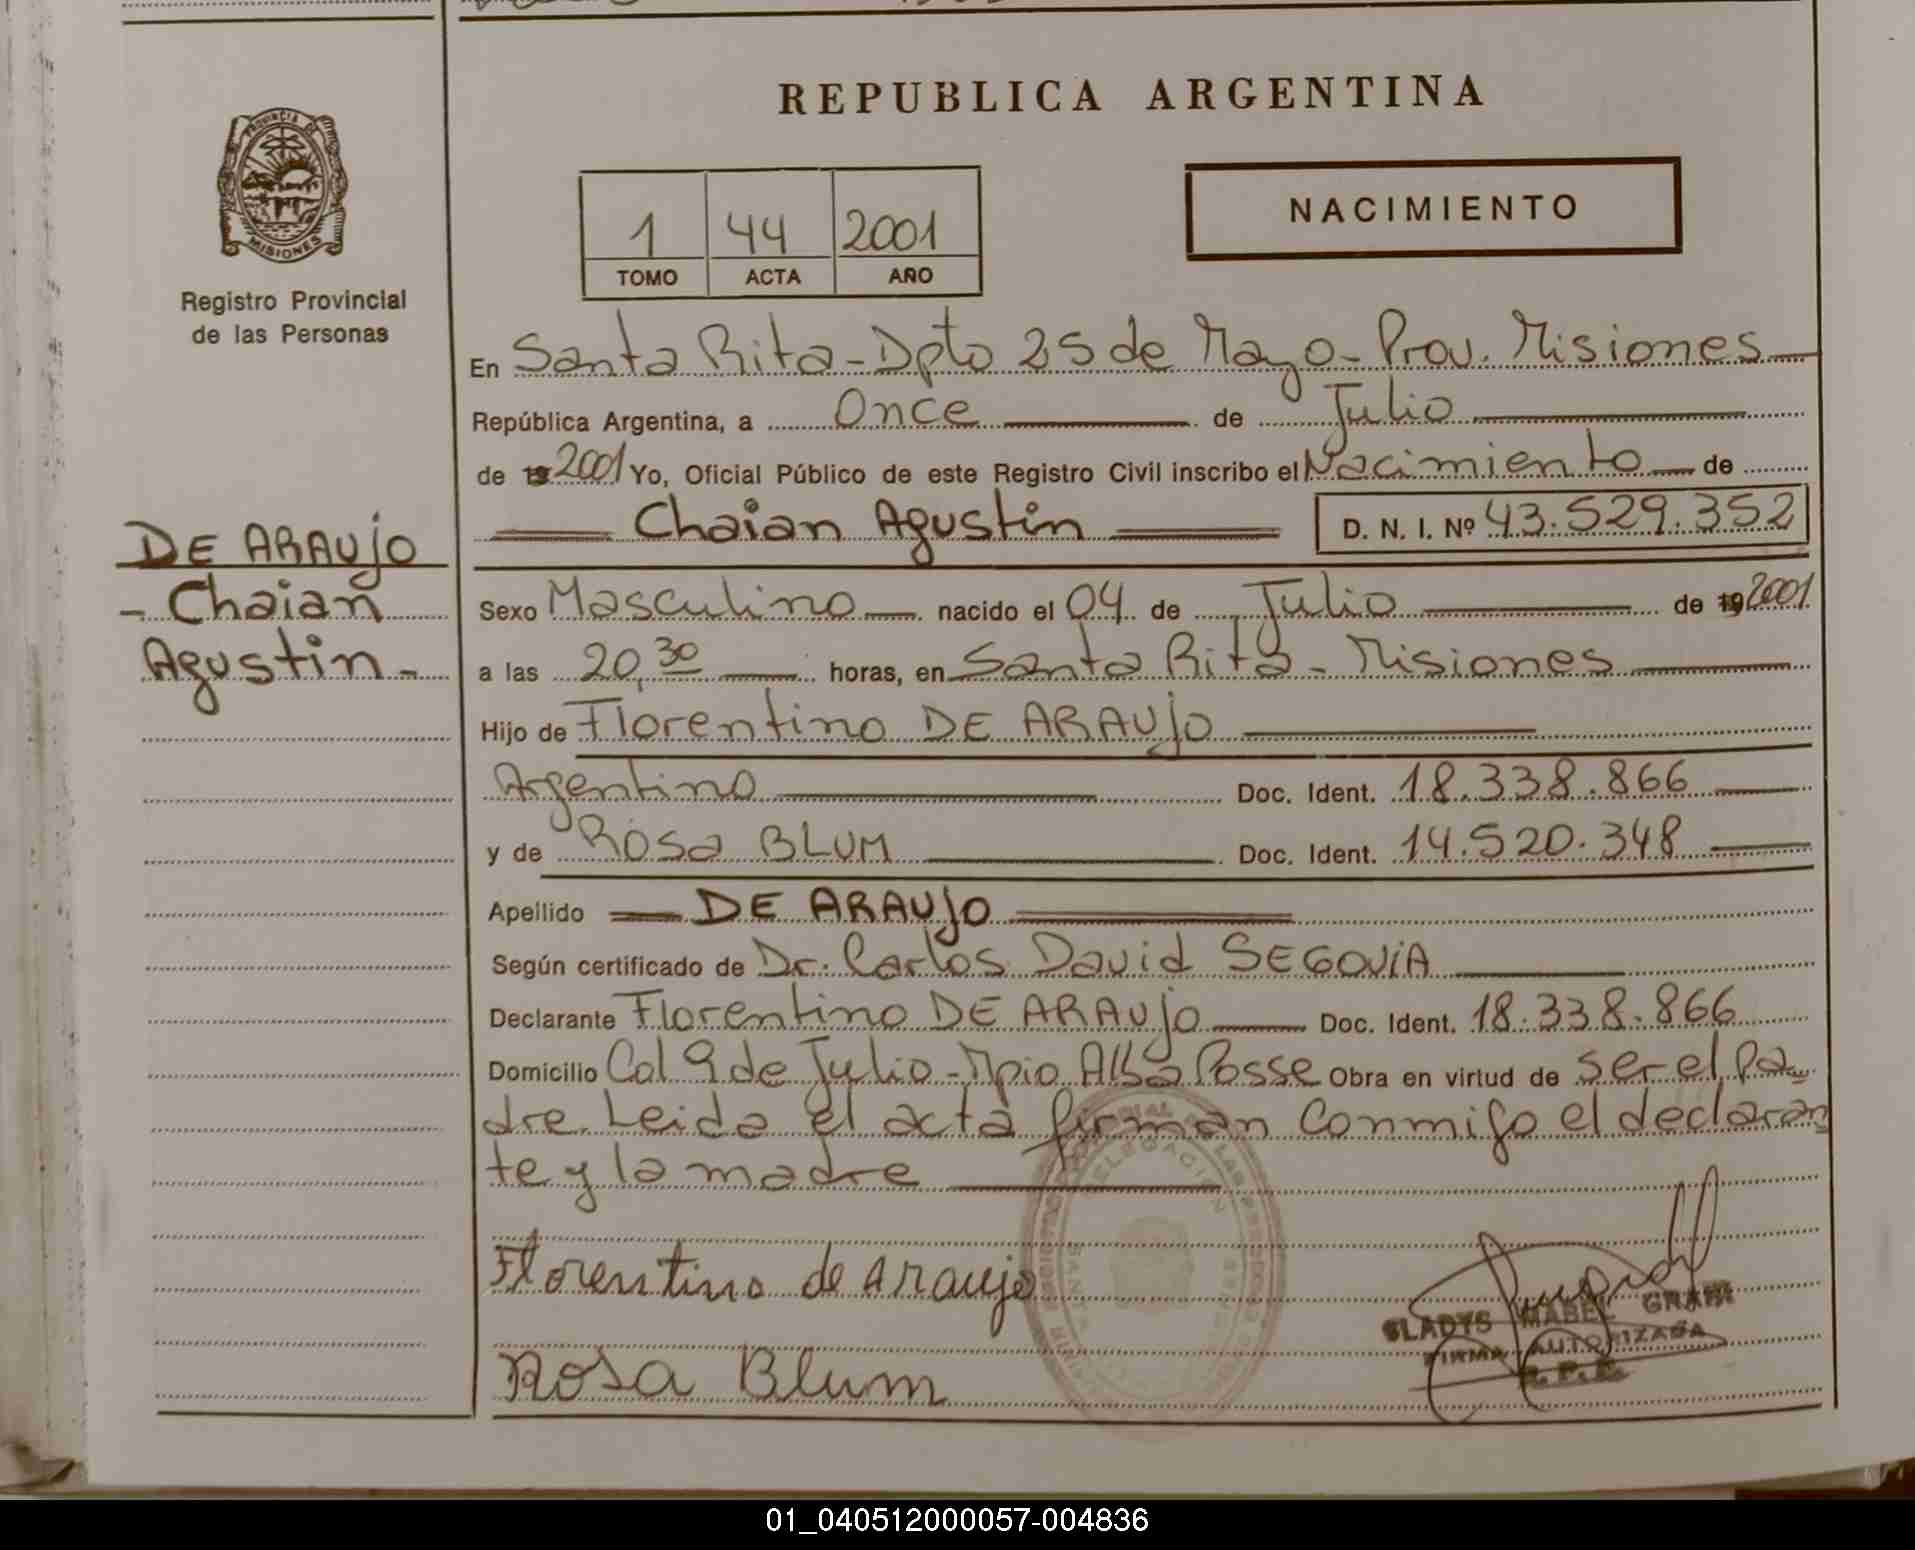 REPUBLICA ARGENTINA
PROVINCIA DE
MISIONES
Registro Provincial
de las Personas
1 44 2001
TOMO ACTA AÑO
NACIMIENTO
En Santa Rita - Dpto 25 de Mayo - Prov. Misiones
República Argentina, a Once de Julio
de 19 2001 Yo, Oficial Público de este Registro Civil inscribo el Nacimiento de
Chaian Agustin D. N. I. Nº 43.529.352
DE ARAUJO
- Chaian
Agustin -
Sexo Masculino nacido el 04 de Julio de 19 2001
a las 20,30 horas, en Santa Rita - Misiones
Hijo de Florentino DE ARAUJO
Argentino Doc. Ident. 18.338.866
y de Rosa BLUM Doc. Ident. 14.520.348
Apellido DE ARAUJO
Según certificado de Dr. Carlos David SEGOVIA
Declarante Florentino DE ARAUJO Doc. Ident. 18.338.866
Domicilio Col 9 de Julio - Mpio Alba Posse Obra en virtud de ser el pa-
dre. Leida el acta firman conmigo el declaran
te y la madre
Florentino de Araujo
Rosa Blum
DELEGACION
GLADYS MABEL
FIRMA AUTORIZADA
R.P.P.
01_040512000057-004836